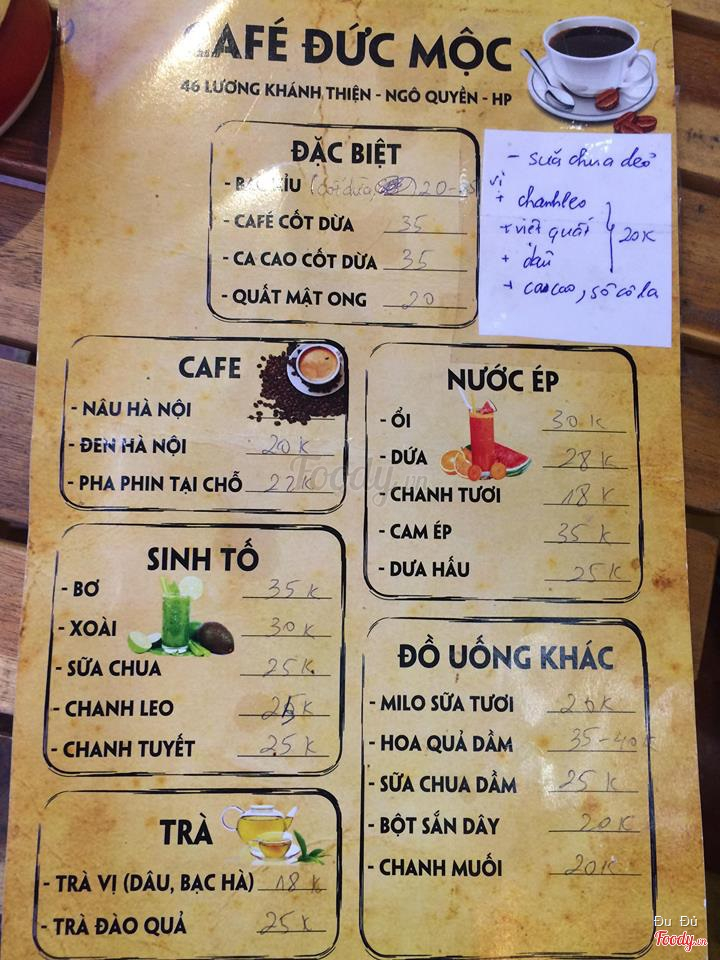 CAFÉ ĐỨC MỘC
46 LƯƠNG KHÁNH THIỆN - NGÔ QUYỀN - HP
ĐẶC BIỆT
- BẠC XỈU (cốt dừa 20-35
- CAFÉ CỐT DỪA 35
- CA CAO CỐT DỪA 35
- QUẤT MẬT ONG 20
- sữa chua dẻo
vị
+ chanh leo
+ việt quất } 20K
+ dâu
+ cacao, sô cô la
CAFE
- NÂU HÀ NỘI
- ĐEN HÀ NỘI 20K
- PHA PHIN TẠI CHỖ 22K
NƯỚC ÉP
- ỔI 30K
- DỨA 28K
- CHANH TƯƠI 18K
- CAM ÉP 35K
- DƯA HẤU 25K
SINH TỐ
- BƠ 35K
- XOÀI 30K
- SỮA CHUA 25K
- CHANH LEO 25K
- CHANH TUYẾT 25K
ĐỒ UỐNG KHÁC
- MILO SỮA TƯƠI
- HOA QUẢ DẦM 35-40K
- SỮA CHUA DẦM 25K
- BỘT SẮN DÂY 20K
- CHANH MUỐI 20K
TRÀ
- TRÀ VỊ (DÂU, BẠC HÀ) 18K
- TRÀ ĐÀO QUẢ 25K
Foody.vn
Đu Đủ
Foody.vn